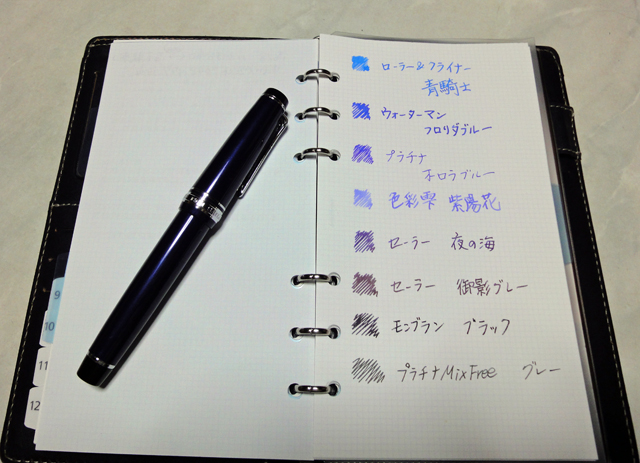 9
10
11
12
ローラー&フライナー
青騎士
ウォーターマン
フロリダブルー
プラチナ
オーロラブルー
色彩雫 紫陽花
セーラー 夜の海
セーラー 御影グレー
モンブラン ブラック
プラチナMixFree グレー